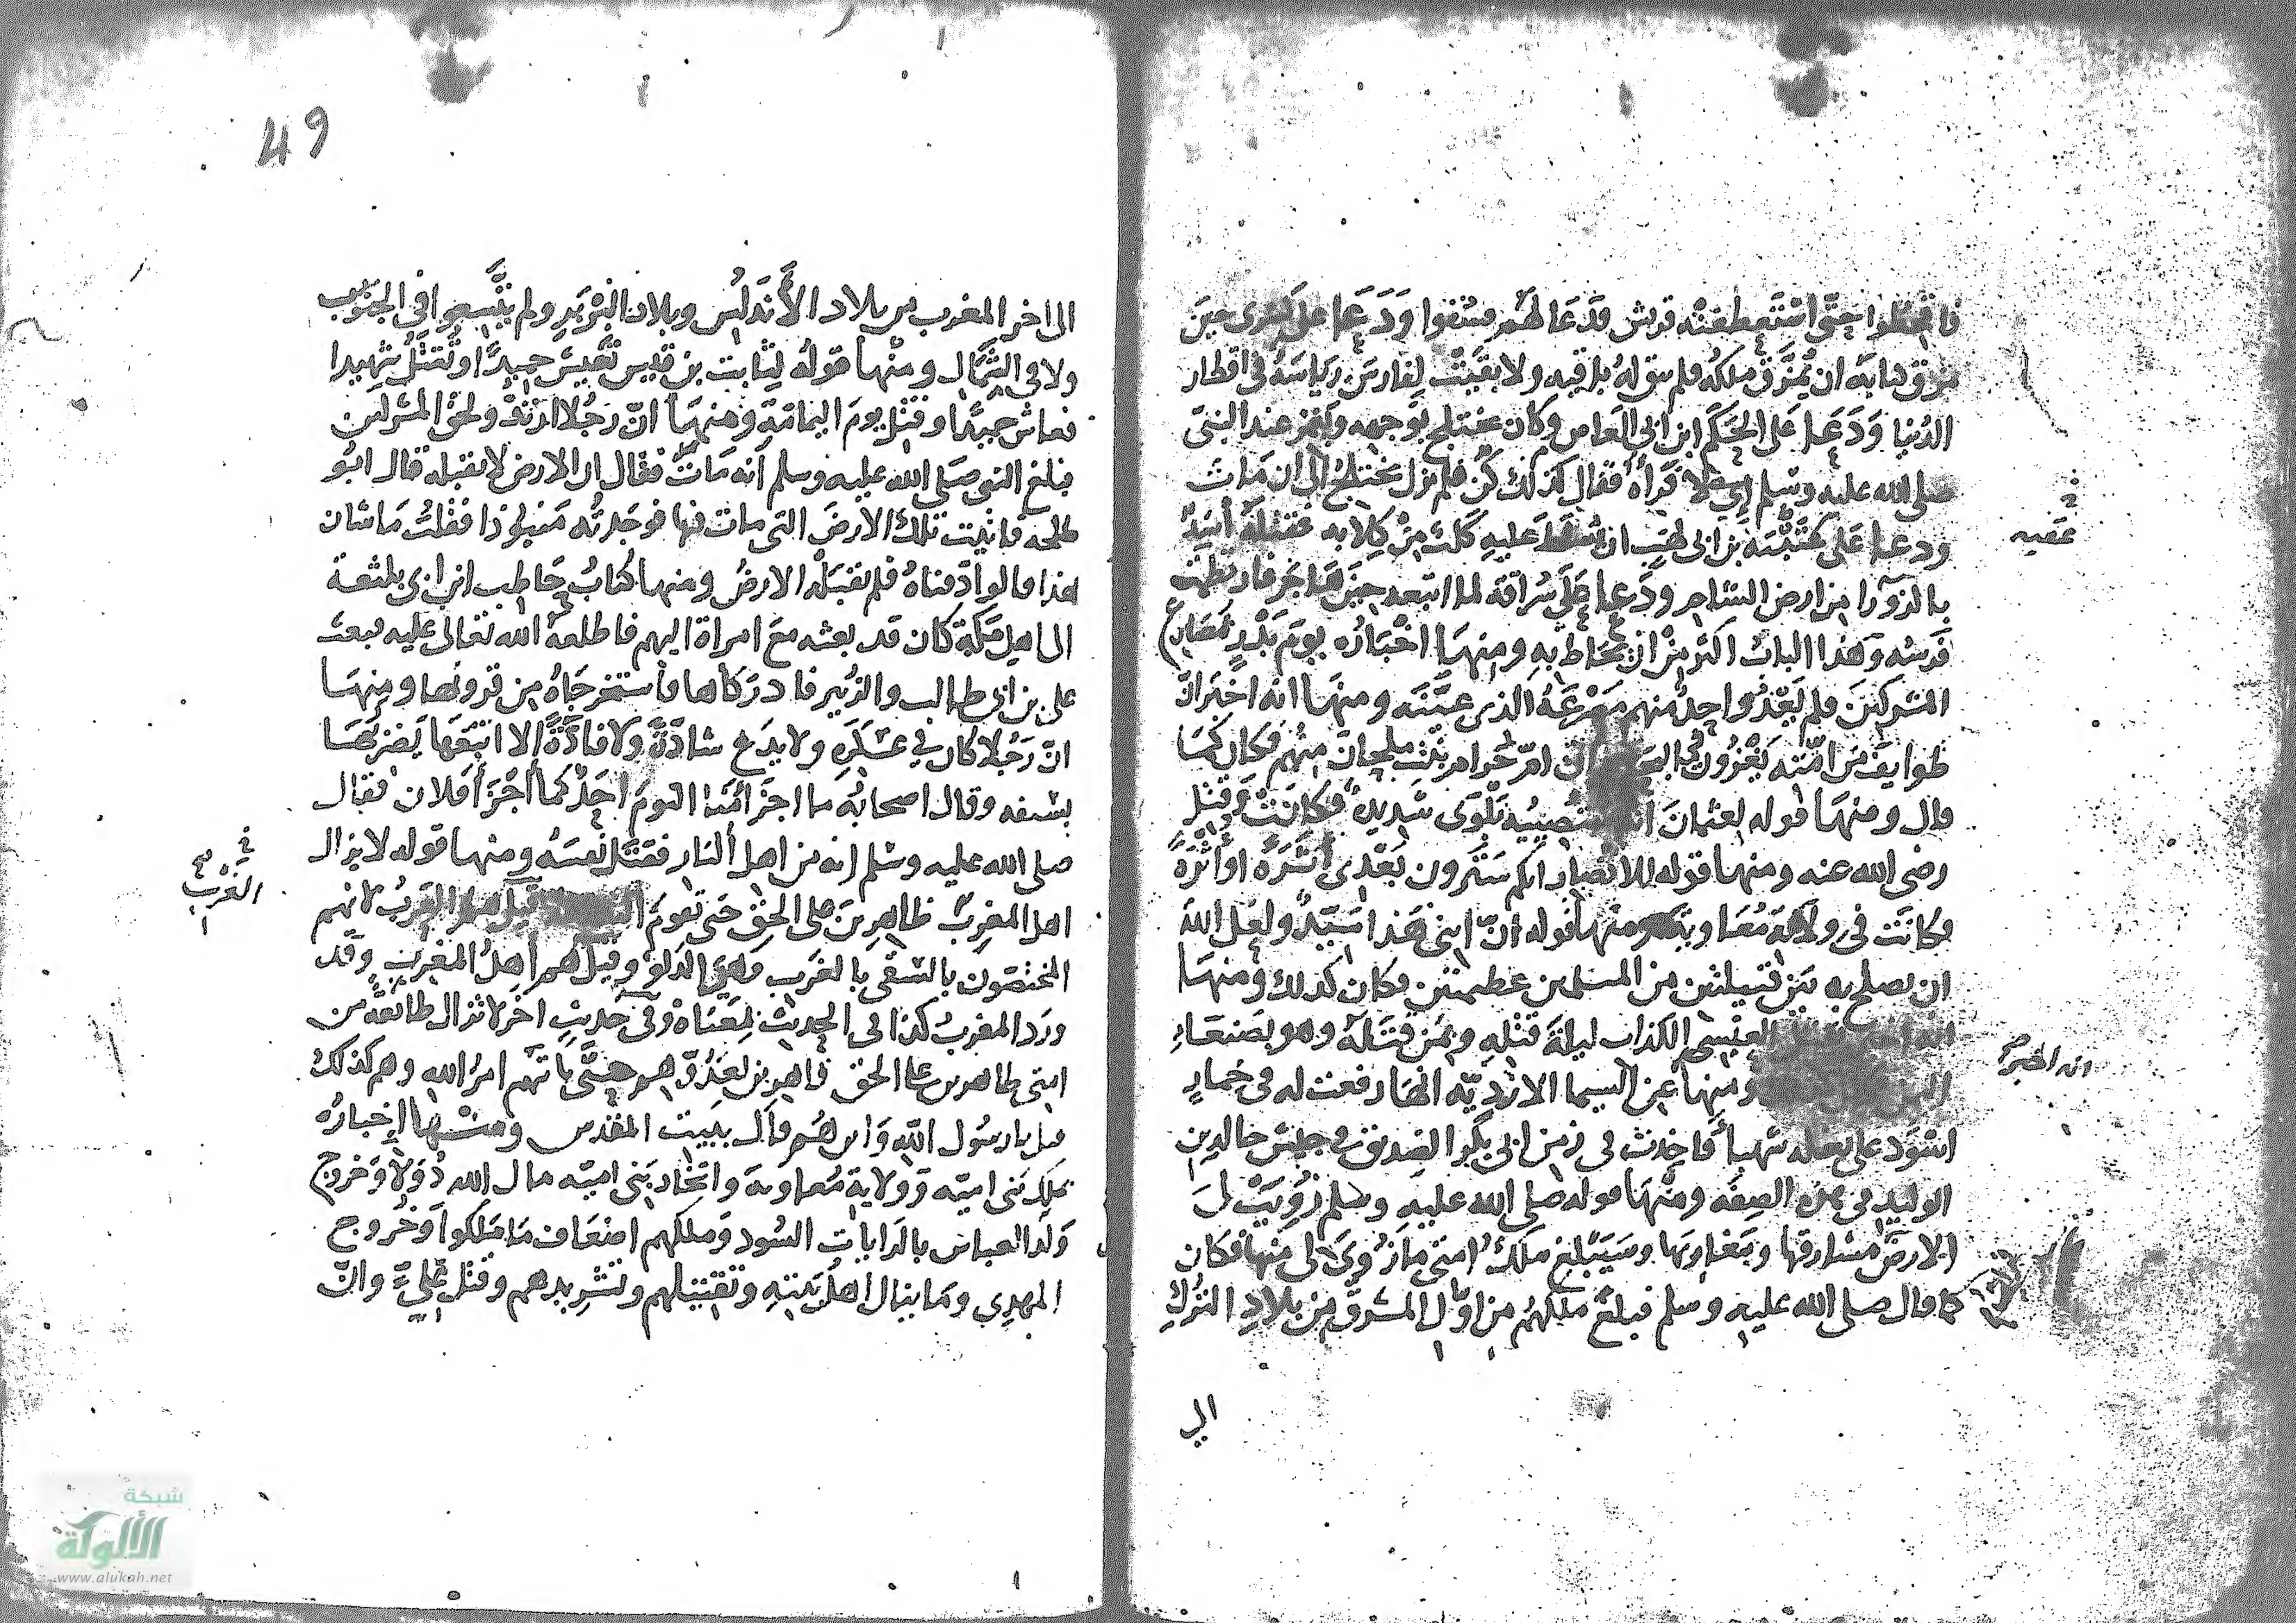 فاقحطوا حتى استعطفته قريش فدعا لهم فسقوا ودعا على كسرى حين
مزق كتابه ان يمزق ملكه فلم تبق له باقيه ولا بقيت لفارس رياسة في اقطار
الدنيا ودعا على الحكم ابن ابي العاص وكان يختلج بوجهه ويغمز عند النبي
صلى الله عليه وسلم اي لا فرآه فقال كذلك كن فلم يزل يختلج الى ان مات
ودعا على عتبة بن ابي لهب ان يسلط عليه كلب من كلابه فقتله أسد
بالزورا من ارض الشام ودعا على سراقة لما اتبعه حين هاجر فارتطمت
فرسه وهذا الباب اكثر من ان يحاط به ومنها اخباره يوم بدر بمصارع
المشركين فلم يعد واحد منهم مصرعه الذي عينه ومنها انه اخبر ان
طوايف من امته يغزون في البحر وان ام حرام بنت ملحان منهم فكان كما
قال ومنها قوله لعثمان انه تصيبه بلوى شديدة فكانت وقتل
رضى الله عنه ومنها قوله للانصار انكم سترون بعدي أثرة أو أثرة
فكانت في ولاية معاوية ومنها قوله ان ابني هذا سيد ولعل الله
ان يصلح به بين فئتين من المسلمين عظيمتين فكان كذلك ومنها
العنسي الكذاب ليلة قتله وبمن قتله وهو بصنعاء
ومنها عن الشيما الازدية انها رفعت له في خمار
اسود على بغلة شهبا فأخذت في زمن ابي بكر الصديق في جيش خالد بن
الوليد في هذه الصفة ومنها قوله صلى الله عليه وسلم زويت لي
الارض مشارقها ومغاربها وسيبلغ ملك امتي ما زوى لي منها فكان
كما قال صلى الله عليه وسلم فبلغ ملكهم من اول المشرق من بلاد الترك
الى
عتبه
انه اخبر
49
الى اخر المغرب من بلاد الأندلس وبلاد البربر ولم يتسعوا في الجنوب
ولا في الشمال ومنها قوله لثابت بن قيس تعيش حميدا وتقتل شهيدا
فعاش حميدا وقتل يوم اليمامة ومنها ان رجلا ارتد ولحق بالمشركين
فبلغ النبي صلى الله عليه وسلم أنه مات فقال ان الارض لا تقبله قال ابو
طلحة فاتيت تلك الارض التي مات فيها فوجدته منبوذا فقلت ما شان
هذا قالوا دفناه فلم تقبله الارض ومنها كتاب حاطب ابن ابي بلتعة
الى اهل مكة كان قد بعثه مع امراة اليهم فاطلعه الله تعالى عليه فبعث
على بن ابي طالب والزبير فادركاها فاستخرجاه من قرونها ومنها
ان رجلا كان في عسكره ولا يدع شاذة ولا فاذة إلا اتبعها يضربها
بسيفه وقال اصحابه ما اجزأ منا اليوم احد كما أجزأ فلان فقال
صلى الله عليه وسلم انه من اهل النار فقتل نفسه ومنها قوله لا يزال
اهل المغرب ظاهرين على الحق حتى تقوم الساعة قيل هم العرب لانهم
المختصون بالسقي بالغرب وهي الدلو وقيل هم أهل المغرب وقد
ورد المغرب كذا في الحديث بمعناه وفي حديث اخر لا تزال طائفة من
امتي ظاهرين على الحق قاهرين لعدوهم حتى ياتهم امر الله وهم كذلك
قيل يا رسول الله واين هم قال ببيت المقدس ومنها إخباره
بملك بني امية وولاية معاوية واتخاد بني امية مال الله دولا وخروج
ولد العباس بالرايات السود وملكهم اضعاف ما ملكوا وخروج
المهدي وما ينال اهل بيته وتقتيلهم وتشريدهم وقتل علي وان
الغرب
شبكة
الألوكة
www.alukah.net